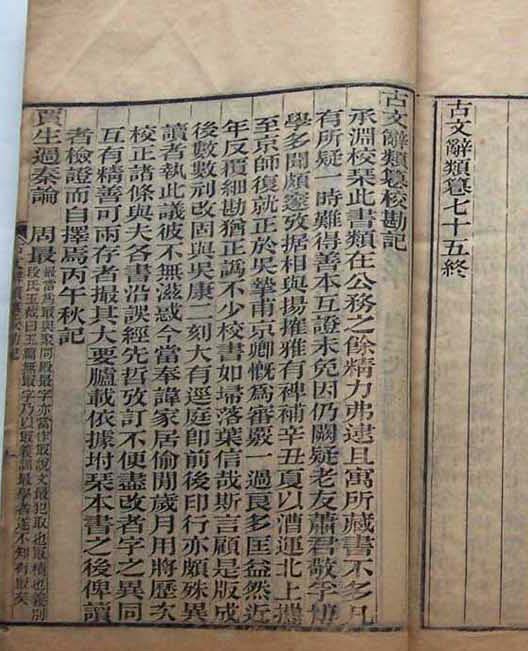 古文辭類篹七十五終
古文辭類篹校勘記
承淵校栞此書類在公務之餘精力弗逮且寓所藏書不多凡
有所疑一時難得善本互證未免因仍闕疑老友蕭君敬孚博
學多聞頗邃攷据相與揚搉雅有裨補辛丑夏以漕運北上攜
至京師復就正於吳摯甫京卿慨爲審覈一過良多匡益然近
年反覆細勘猶正譌不少校書如埽落葉信哉斯言顧是版成
後數數剜改固與吳康二刻大有逕庭卽前後印行亦頗殊異
讀者執此議彼不無滋惑今當奉諱家居偷閒歲月用將歷次
校正諸條與夫各書沿誤經先哲攷訂不便盡改者字之異同
互有精善可兩存者撮其大要臚載依據坿栞本書之後俾讀
者檢證而自擇焉丙午秋記
賈生過秦論 周最
最當爲冣與聚同殷最字亦當作冣說文最犯取也冣積也義別
段氏玉裁曰玉篇無冣字乃以冣義訓最學者遂不知有冣矣